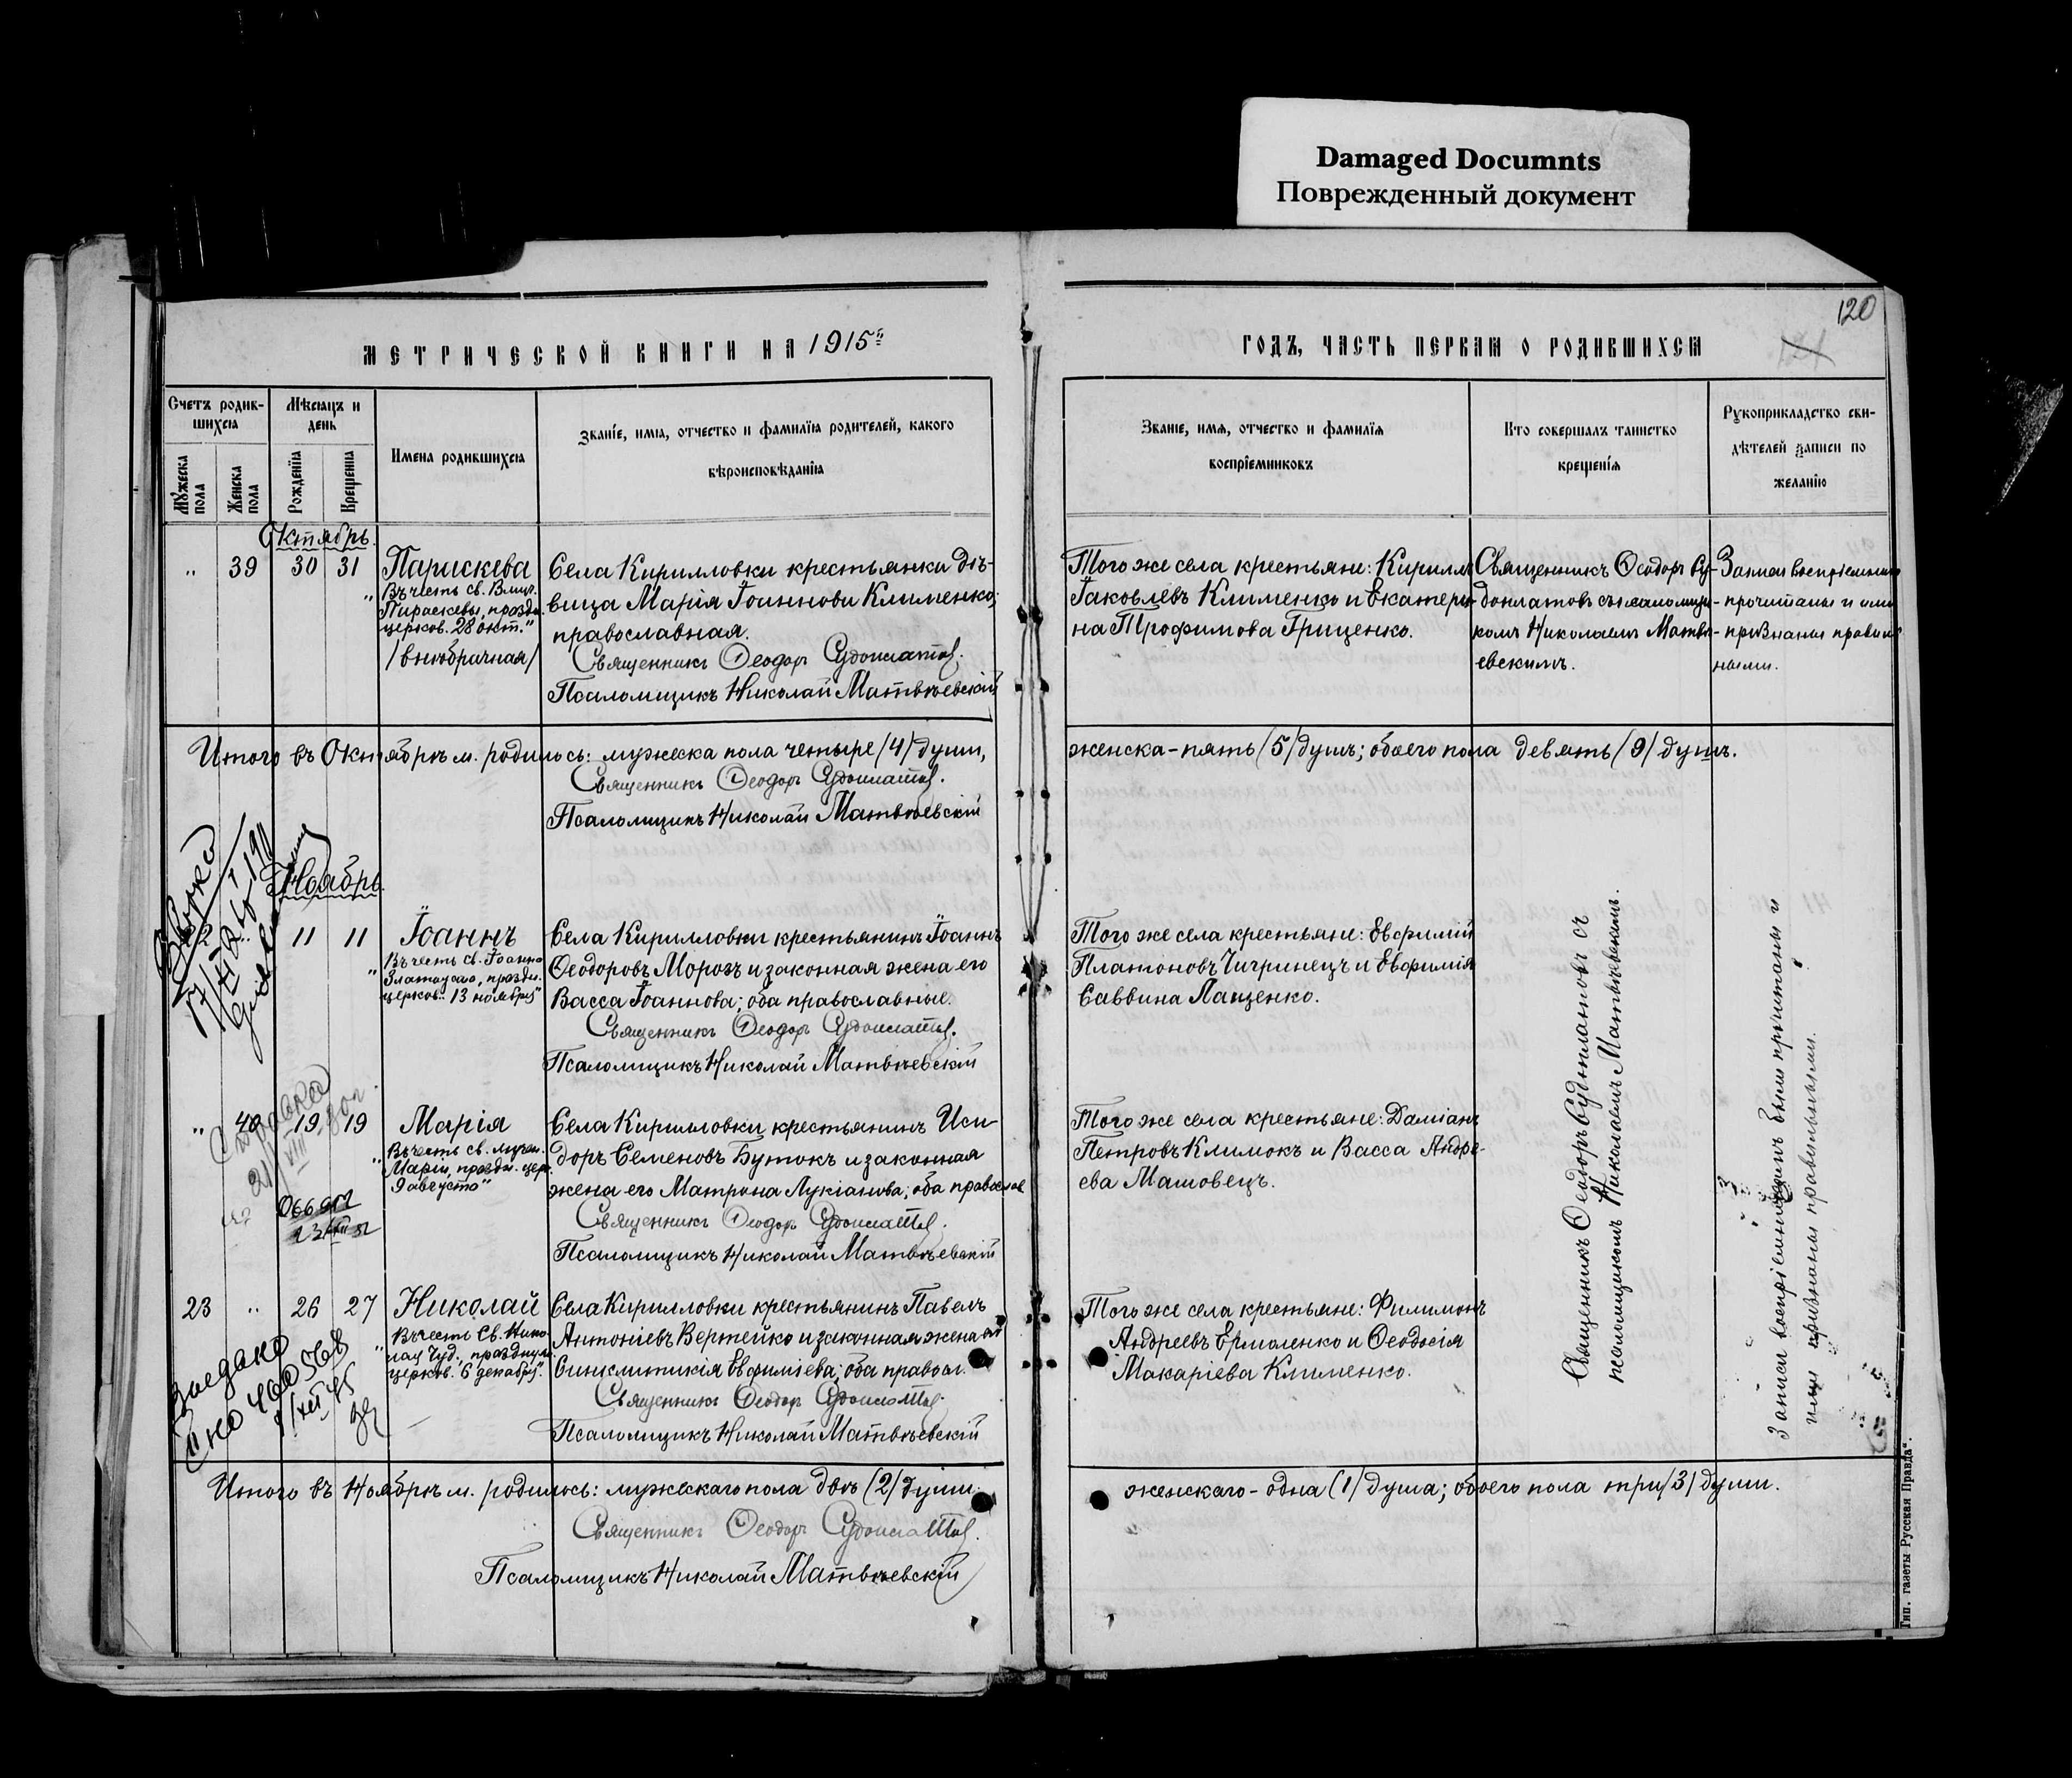 Damaged Documnts
Поврежденный документ
120
МЕТРИЧЕСКОЙ КНИГИ НА 1915
ГОДЪ, ЧАСТЬ ПЕРВАЯ О РОДИВШИХСЯ
Счетъ родив-
шихся
Мѣсяцъ и
день
Мужеска
пола
Женска
пола
Рожденія
Крещенія
Имена родившихся
Званіе, имя, отчество и фамилія родителей, какого
вѣроисповѣданія
Званіе, имя, отчество и фамилія
воспріемниковъ
Кто совершалъ таинство
крещенія
Рукоприкладство сви-
дѣтелей записи по
желанію
Октябрь.
" 39 30 31
Параскева
Въ честь св. Влмц.
Параскевы, праздн.
церков. 28 окт."
/внѣбрачная/
Села Кирилловки крестьянка дѣ-
вица Марія Іоаннова Клименко;
православная.
Священникъ Ѳеодоръ
Псаломщикъ Николай Матвѣевскій
Того же села крестьяне: Кириллъ
Іаковлевъ Клименко и Екатери-
на Трофимова Гриценко.
Священникъ Ѳеодоръ
съ псаломщи-
комъ Николаемъ Матвѣ-
евскимъ.
Записи воспріемникамъ
прочитаны и ими
признаны правиль-
ными.
Итого въ Октябрѣ м. родилось: мужеска пола четыре /4/ души,
женска - пять /5/ душъ; обоего пола девять /9/ душъ.
Священникъ Ѳеодоръ
Псаломщикъ Николай Матвѣевскій
Ноябрь.
11 11
Іоаннъ
Въ честь св. Іоанна
Златоуста, праздн.
церков. 13 ноября"
Села Кирилловки крестьянинъ Іоаннъ
Ѳеодоровъ Морозъ и законная жена его
Васса Іоаннова; оба православные.
Священникъ Ѳеодоръ
Псаломщикъ Николай Матвѣевскій
Того же села крестьяне: Евфимій
Платоновъ Чигринецъ и Евфимія
Саввина Лащенко.
" 40 19 19
Марія
Въ честь св. мучен.
Маріи, праздн. церк.
9 августа"
Села Кирилловки крестьянинъ Иси-
доръ Семеновъ Бутокъ и законная
жена его Матрона Лукіанова; оба православ.
Священникъ Ѳеодоръ
Псаломщикъ Николай Матвѣевскій
Того же села крестьяне: Даміанъ
Петровъ Климокъ и Васса Андре-
ева Машовецъ.
Справка
23 " 26 27
Николай
Въ честь Св. Нико-
лая Чуд., празднуем.
церков. 6 декабря."
Села Кирилловки крестьянинъ Павелъ
Антоніевъ Вертейко и законная жена его
Синклитикія Евфиміева; оба правосл.
Священникъ Ѳеодоръ
Псаломщикъ Николай Матвѣевскій
Того же села крестьяне: Филимонъ
Андреевъ Ермоленко и Ѳеодосія
Макаріева Клименко.
Священникъ Ѳеодоръ съ
псаломщикомъ Николаемъ Матвѣевскимъ.
Записи воспріемникамъ были прочитаны и
ими признаны правильными.
Итого въ Ноябрѣ м. родилось: мужскаго пола двѣ /2/ души.
женскаго - одна /1/ душа; обоего пола три /3/ души.
Священникъ Ѳеодоръ
Псаломщикъ Николай Матвѣевскій
Тип. газеты Русская Правда".